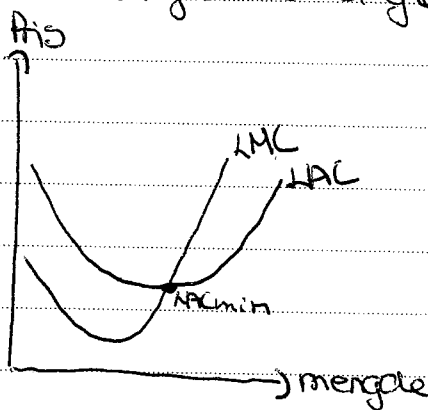 Pris
LMC
LAC
LACmin
mengde